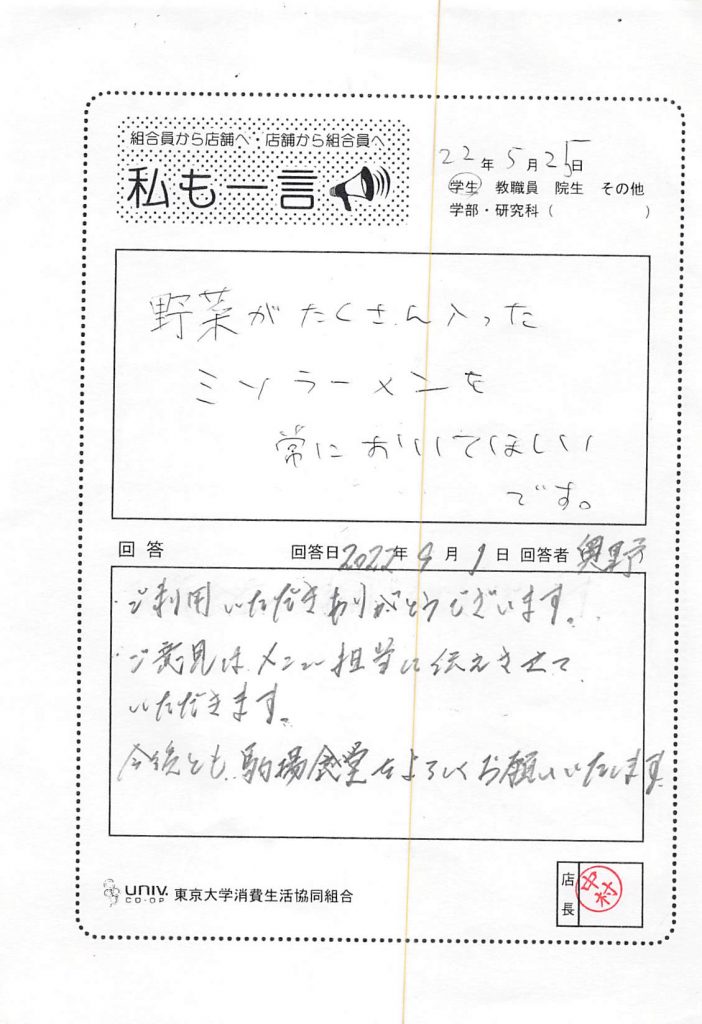 組合員から店舗へ・店舗から組合員へ
私も一言
22年5月25日
学生 教職員 院生 その他
学部・研究科( )
野菜がたくさん入った
ミソラーメンを
常においてほしい
です。
回答 回答日2022年9月1日 回答者 奥野
・ご利用いただきありがとうございます。
・ご意見はメニュー担当に伝えさせて
いただきます。
今後とも、駒場食堂をよろしくお願いいたします。
UNIV. CO-OP 東京大学消費生活協同組合
店長 中村